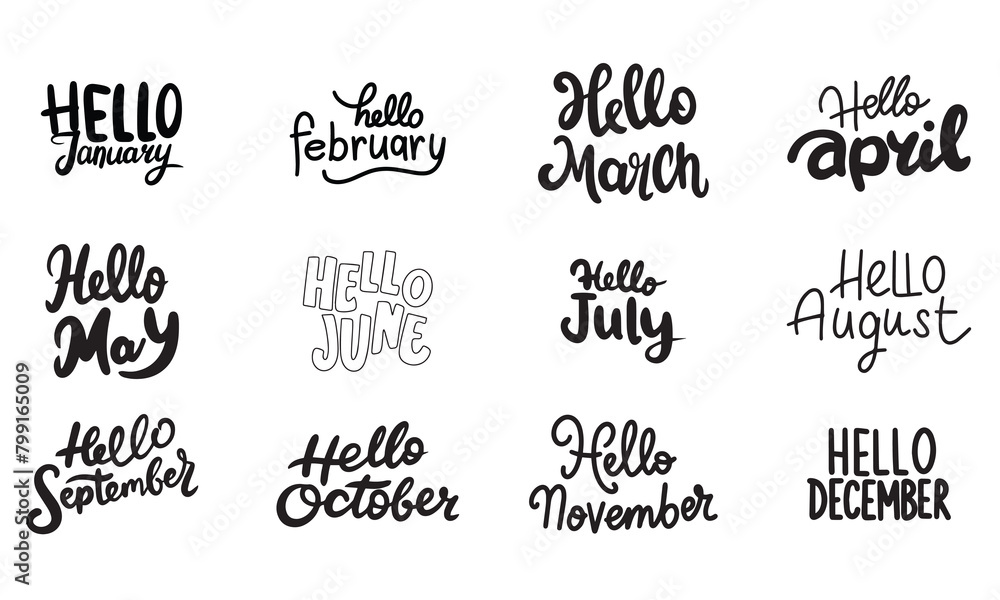 HELLO
January
hello
february
Hello
March
Hello
april
Hello
May
HELLO
JUNE
Hello
July
HeLLO
August
Hello
September
Hello
October
Hello
November
HELLO
DECEMBER
Adobe Stock | #799165009